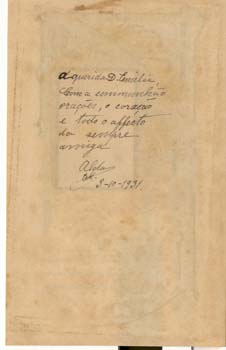 A querida D. Emilia,
com a communhão
orações, o coração
e todo o affecto
da sempre
amiga
Alda
3-10-1931